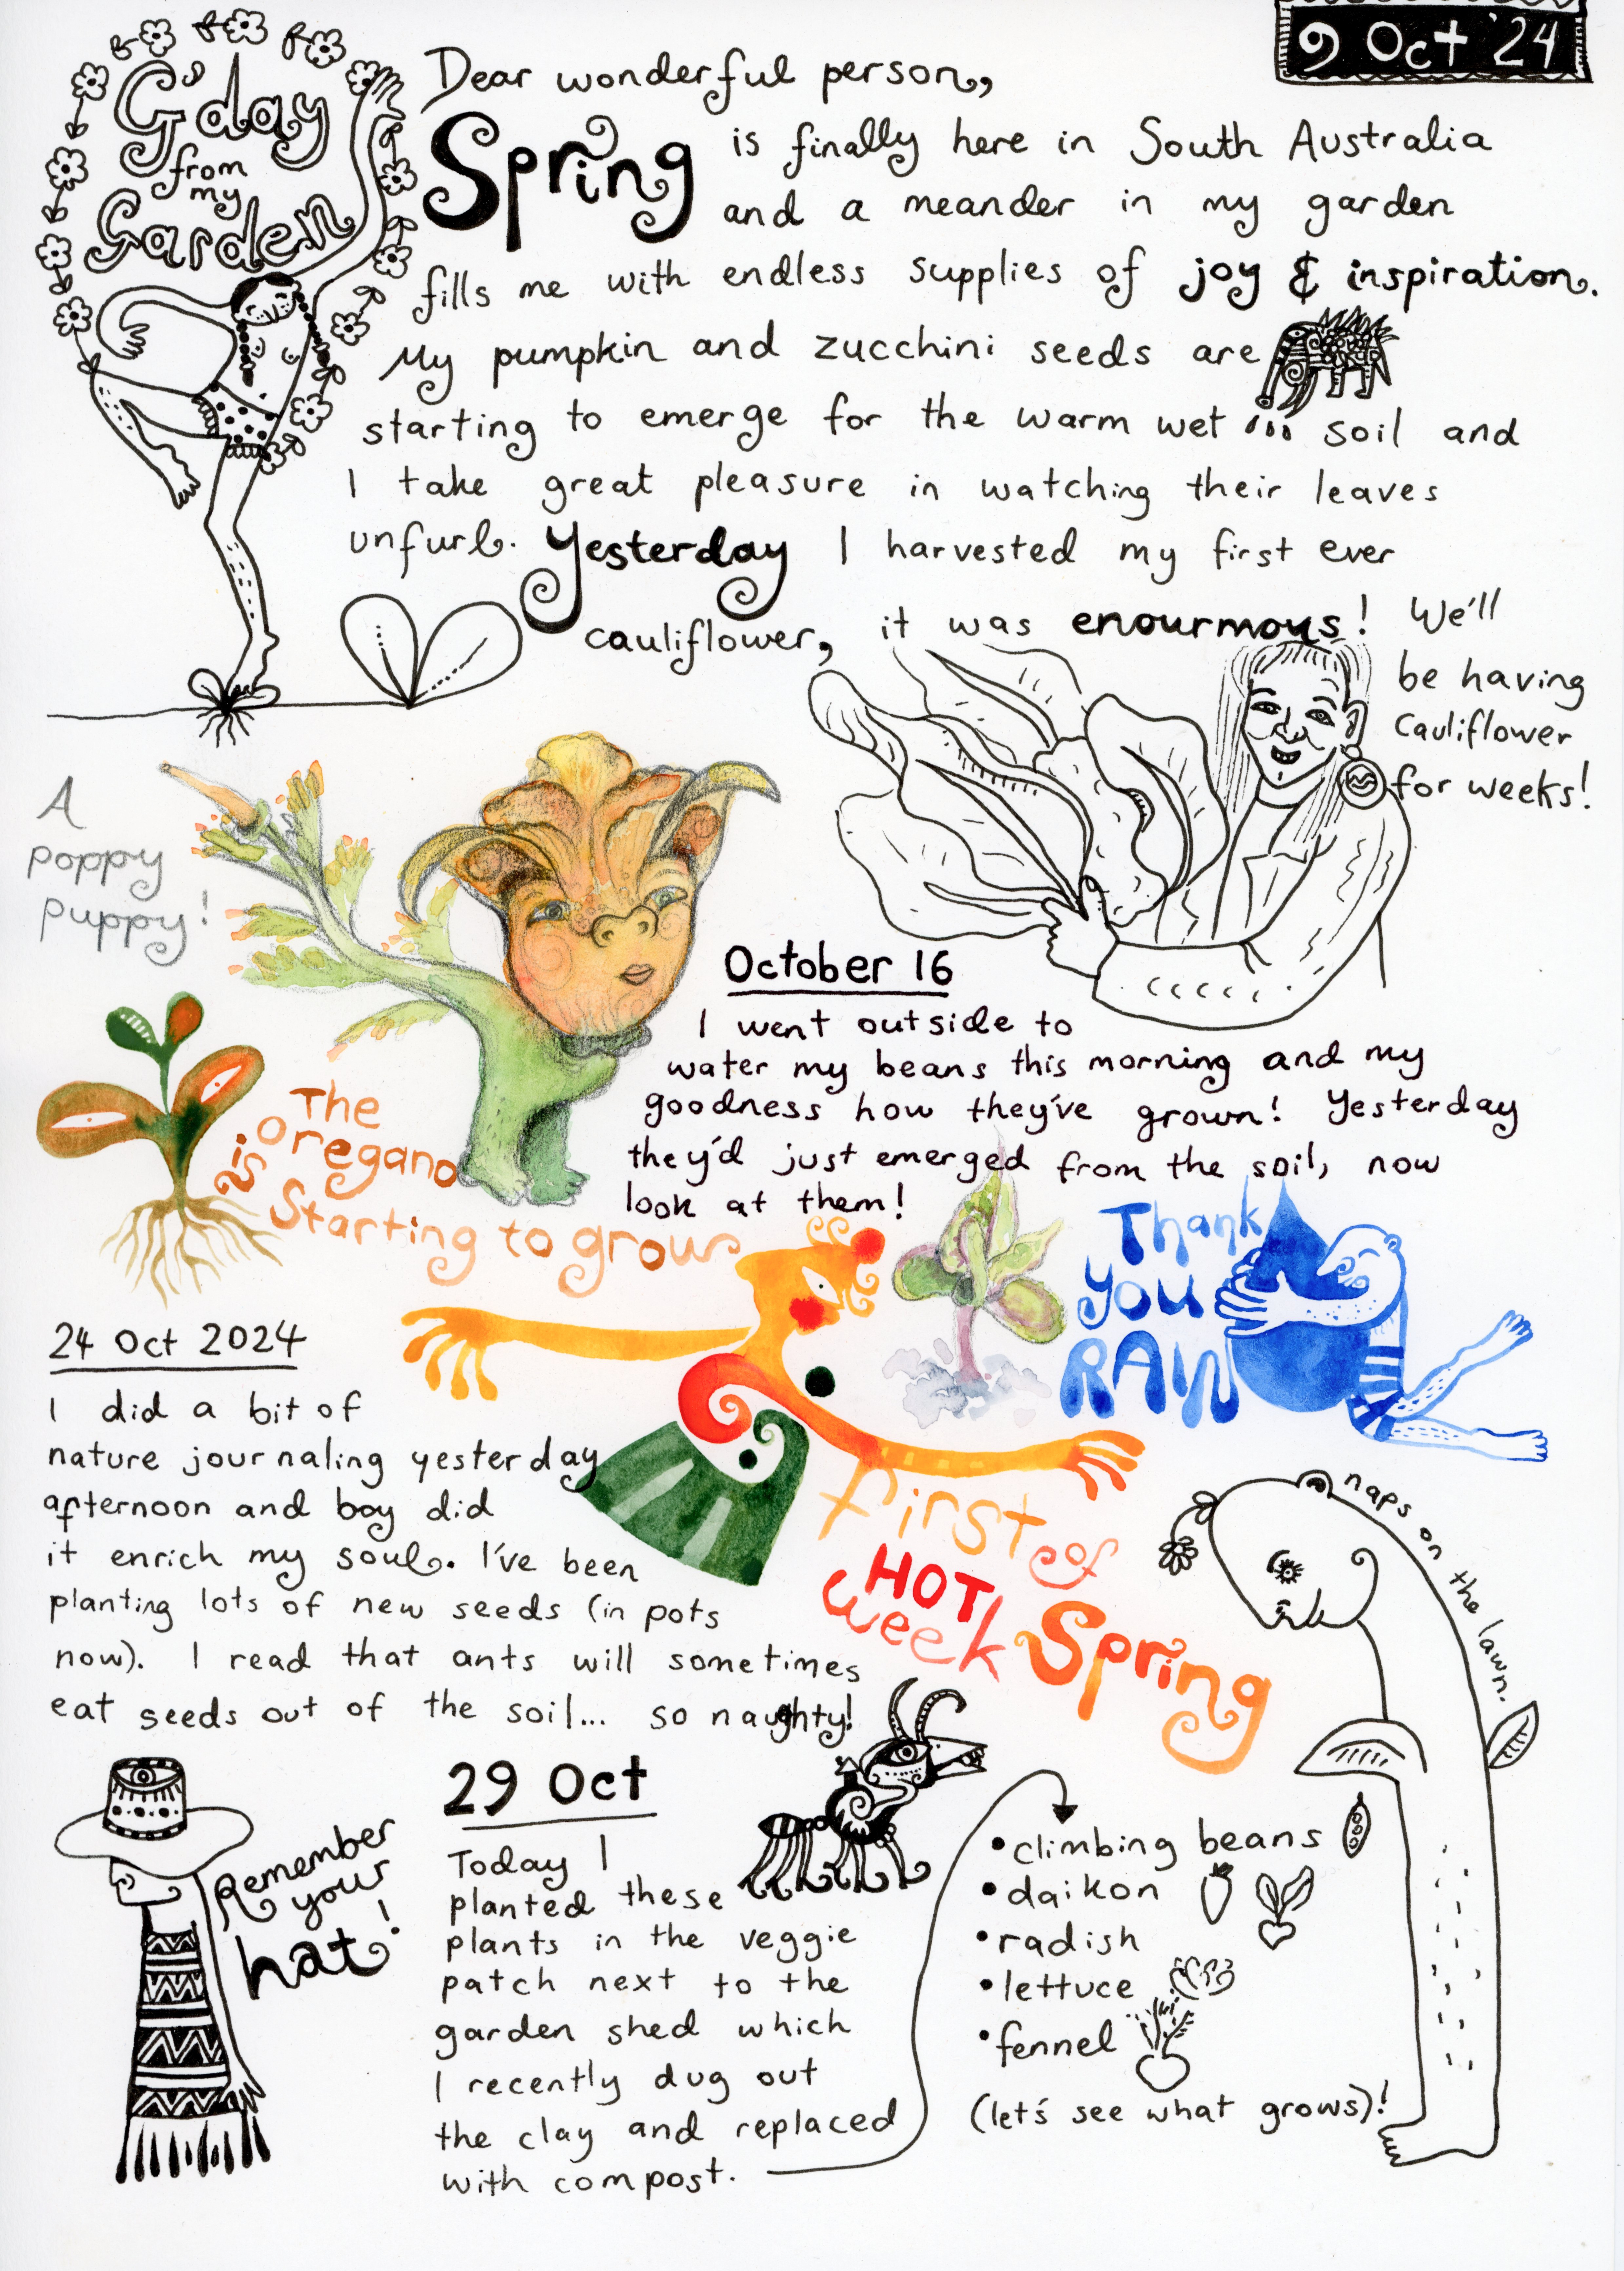 9 Oct '24
G'day
from
my
Garden
Dear wonderful person,
Spring is finally here in South Australia
and a meander in my garden
fills me with endless supplies of joy & inspiration.
My pumpkin and zucchini seeds are
starting to emerge for the warm wet soil and
I take great pleasure in watching their leaves
unfurl. Yesterday I harvested my first ever
cauliflower, it was enourmous! We'll
be having
cauliflower
for weeks!
A
poppy
puppy!
October 16
I went outside to
water my beans this morning and my
goodness how they've grown! Yesterday
they'd just emerged from the soil, now
look at them!
The
oregano
is
starting to grow
Thank
you
RAIN
24 Oct 2024
I did a bit of
nature journaling yesterday
afternoon and boy did
it enrich my soul. I've been
planting lots of new seeds (in pots
now). I read that ants will sometimes
eat seeds out of the soil... so naughty!
first of
HOT
week Spring
naps on the lawn.
Remember
your
hat!
29 Oct
Today I
planted these
plants in the veggie
patch next to the
garden shed which
I recently dug out
the clay and replaced
with compost.
• climbing beans
• daikon
• radish
• lettuce
• fennel
(let's see what grows)!